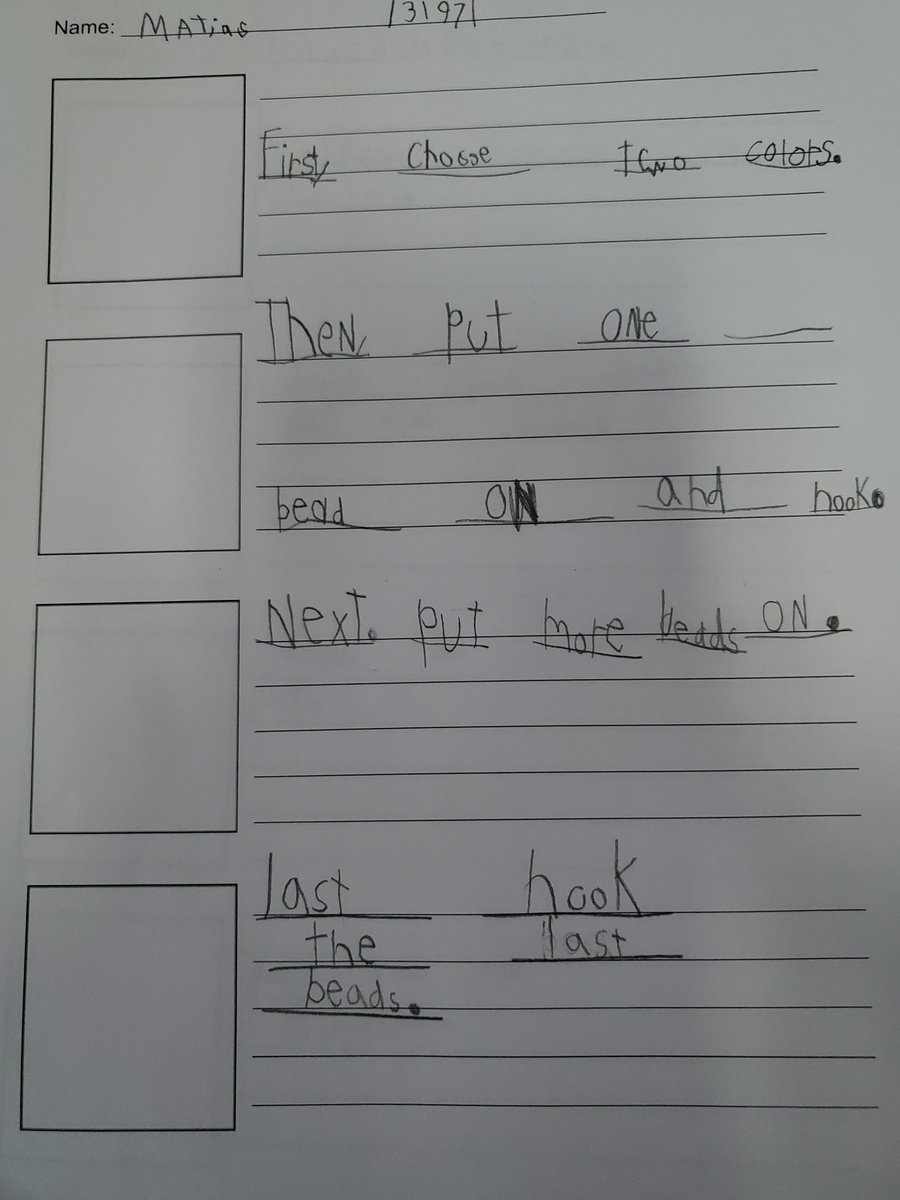 Name: MATias 131971
First, Chosse two colors.
Then, put ONe
bead ON and hook.
Next. put more beads ON.
last hook
the last
beads.